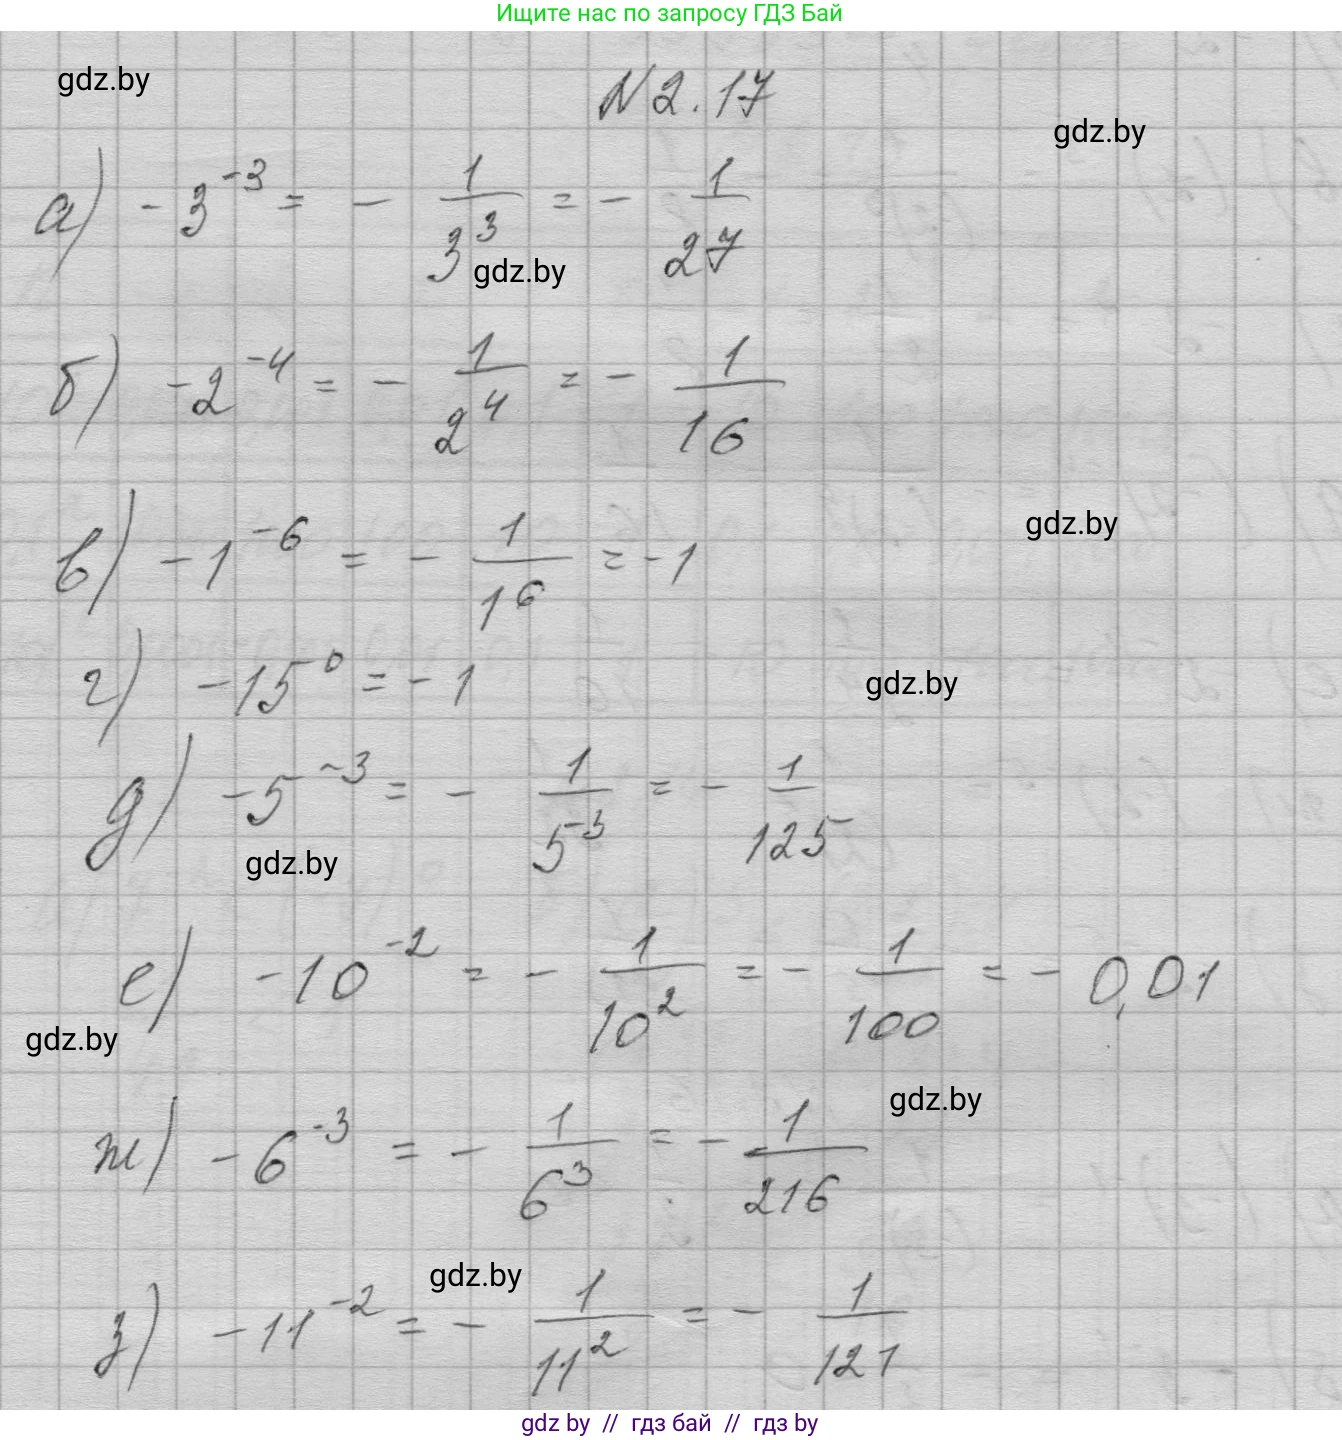 Ищите нас по запросу ГДЗ Бай
gdz.by
N 2.17
gdz.by
а) -3^-3 = - 1/3^3 = - 1/27
gdz.by
б) -2^-4 = - 1/2^4 = - 1/16
gdz.by
в) -1^-6 = - 1/1^6 = -1
г) -15^0 = -1
gdz.by
д) -5^-3 = - 1/5^3 = - 1/125
gdz.by
е) -10^-2 = - 1/10^2 = - 1/100 = - 0,01
gdz.by
gdz.by
ж) -6^-3 = - 1/6^3 = - 1/216
gdz.by
з) -11^-2 = - 1/11^2 = - 1/121
gdz by // гдз бай // гдз by